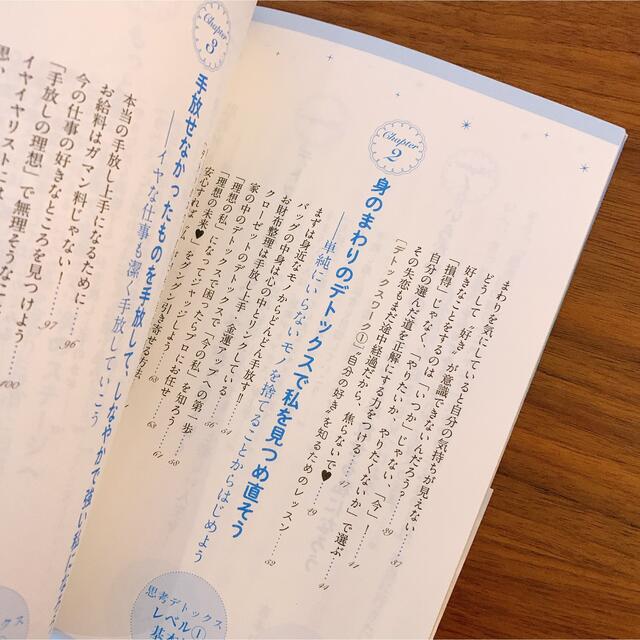 まわりを気にしていると自分の気持ちが見えない
どうして“好き”が意識できないんだろう? ……37
好きなことをするのは「いつか」じゃない、「今」! ……39
「損得」じゃなく、「やりたいか、やりたくないか」で選ぶ ……44
自分の選んだ道を正解にする力をつける ……47
その失恋もまだ途中経過だから、焦らないで♥ ……49
［デトックスワーク①］“自分の好き”を知るためのレッスン ……52
Chapter 2
身のまわりのデトックスで私を見つめ直そう
——単純にいらないモノを捨てることからはじめよう
まずは身近なモノからどんどん手放す!!
バッグの中身は心の中とリンクしている ……54
お財布整理は手放し上手、金運アップへの第一歩 ……56
クローゼットのデトックスで「今の私」を知ろう
家の中のデトックスで
「理想の私」になってジャッジしよう
「理想の私」に困ったらプロにお任せ
グングン引き寄せる方法 ……68
Chapter 3
手放せなかったものを手放して、しなやかで強い私に
——イヤな仕事も潔く手放していこう
本当の手放し上手になるために ……96
お給料はガマン料じゃない! ……97
今の仕事の好きなところを見つけよう
「手放しの理想」で無理そうなこ
イヤイヤリストには ……100
思考デトックス
レベル①
基本